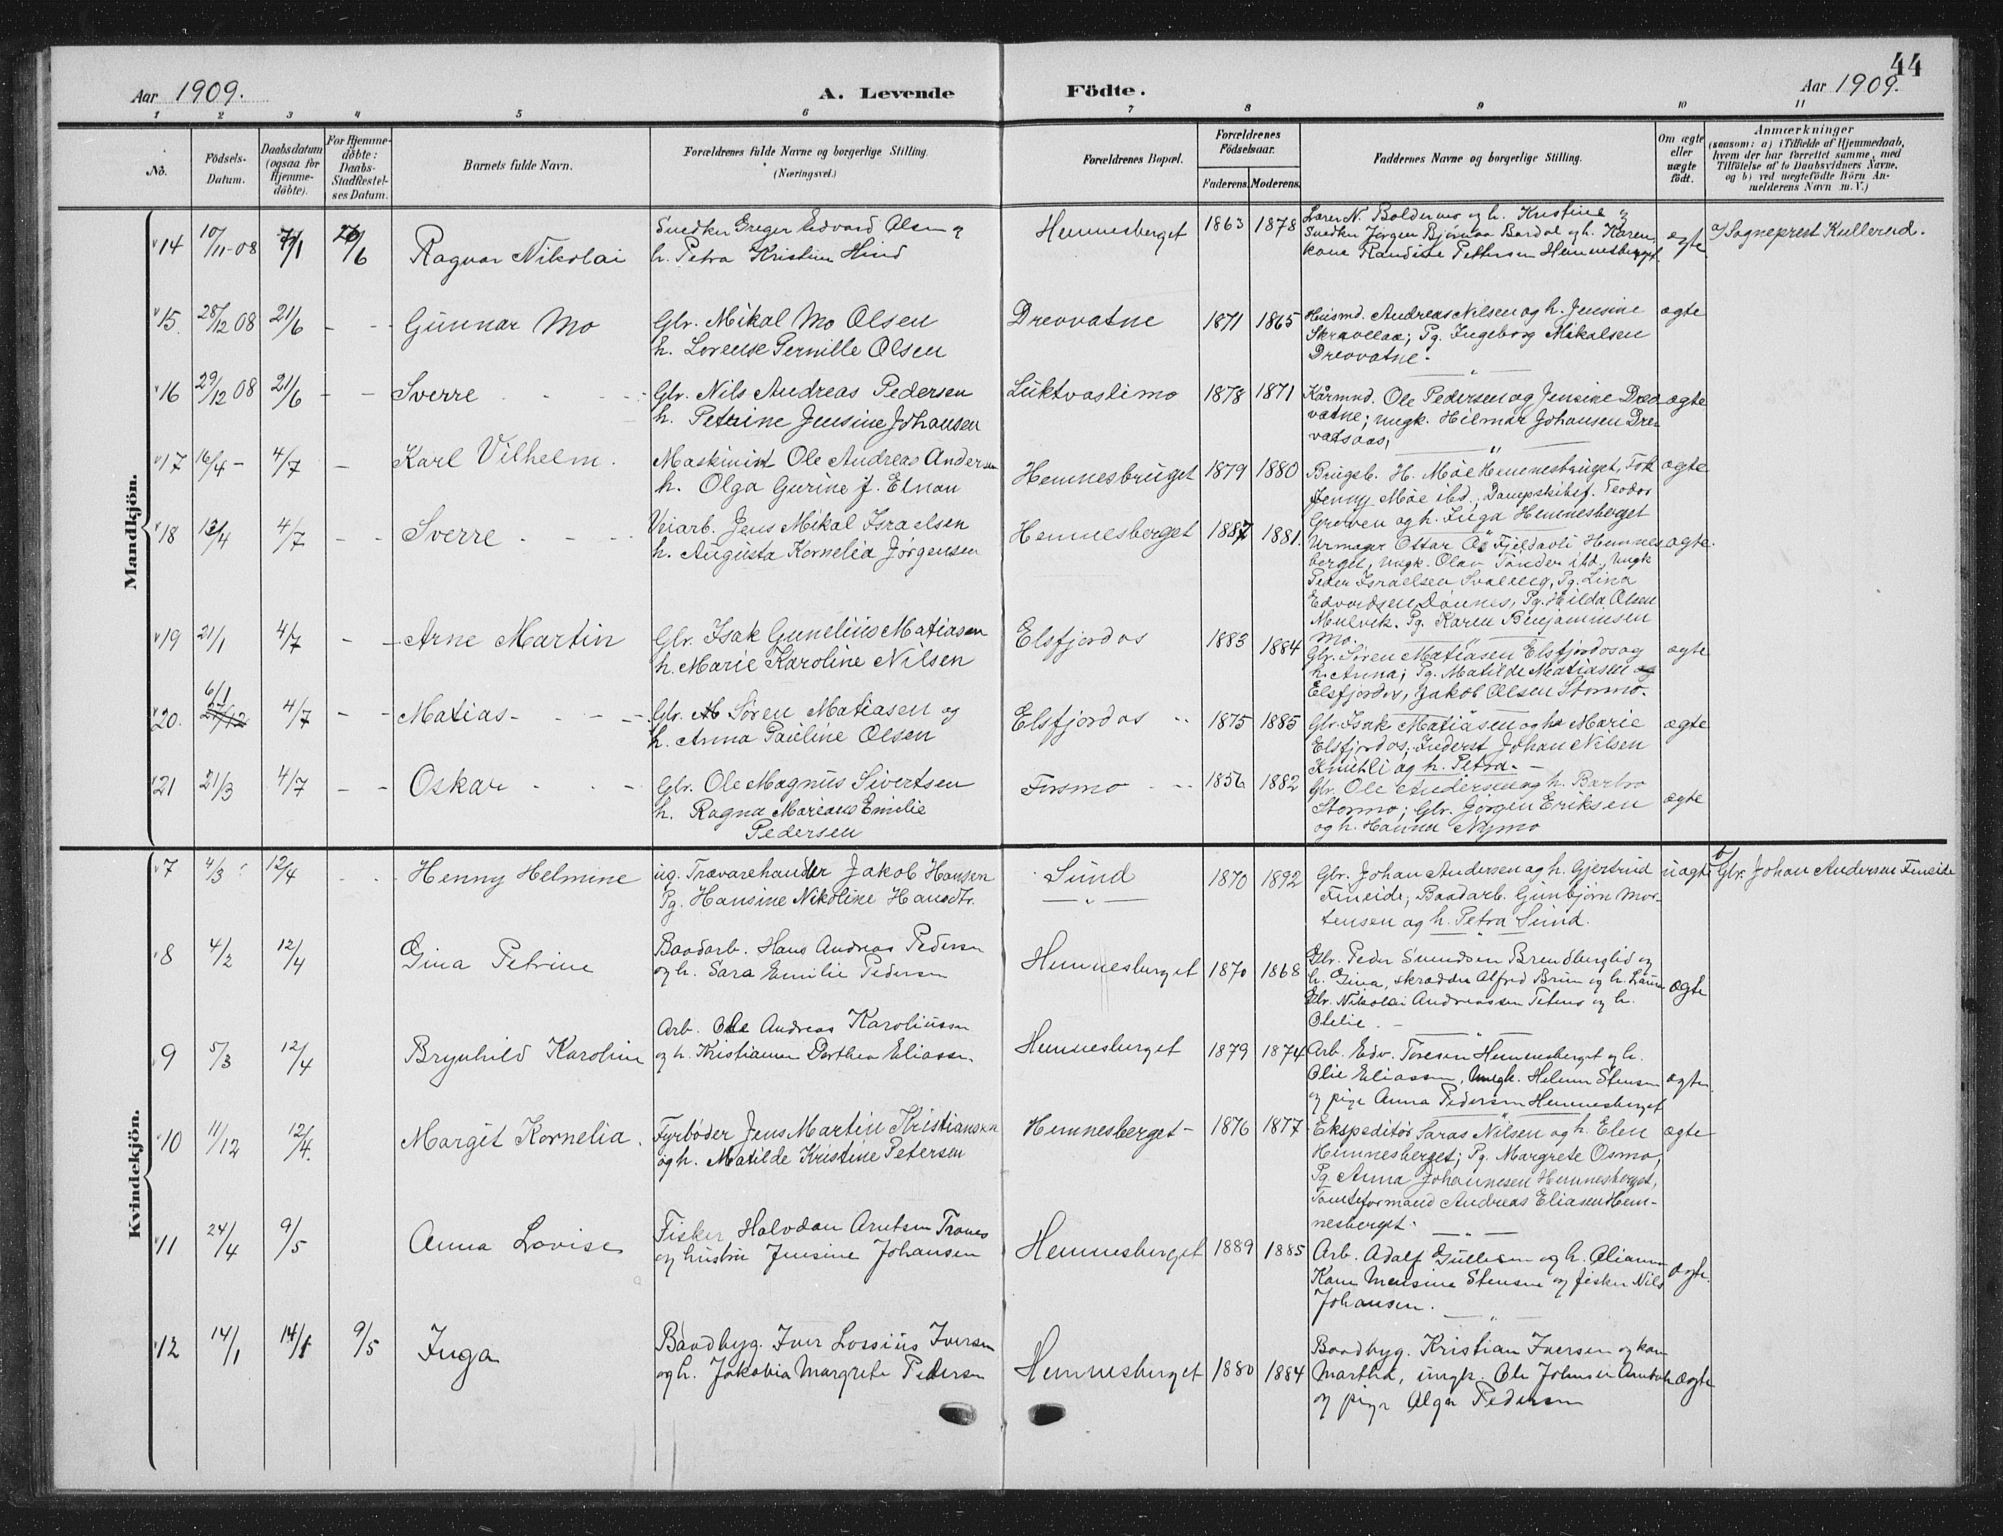 44
Aar 1909.
A. Levende
Födte.
Aar 1909.
1 2 3 4 5 6 7 8 9 10 11
No.
Födsels-Datum.
Daabsdatum (ogsaa for Hjemme-döbte).
For Hjemme-döbte: Daabs-Stadfæstel-ses Datum.
Barnets fulde Navn.
Forældrenes fulde Navne og borgerlige Stilling. (Næringsvei.)
Forældrenes Bopæl.
Forældrenes Födselsaar.
Faderens. Moderens.
Faddernes Navne og borgerlige Stilling.
Om ægte eller uægte födt.
Anmærkninger
(saasom: a) i Tilfælde af Hjemmedaab, hvem der har forrettet samme, med Tilföielse af to Daabsvidners Navne, og b) ved uægtefödte Börn An-melderens Navn m. V.)
Mandkjön.
14 10/11-08 7/1 20/6 Ragnar Nikolai
Snedker Greger Edvard Olsen og
h. Petra Kristine Hind
Hemnesberget 1863 1878
Lærer N. Boldermo og h. Kristine og
Snedker Jørgen Bjørnaa Bardal og h. Karen
kone Randine Pettersen Hemnesberget
ægte a/ Sogneprest Kullerud.
15. 28/12 08 21/6 - - Gunnar Mo
Glr. Mikal Mo Olsen
h. Lorense Pernille Olsen
Drevvatne 1871 1865
Husmd. Andreas Nilsen og h. Jensine
Skravelaa; Pg. Ingeborg Mikalsen
Drevvatne.
ægte
16 29/12 08 21/6 - - Sverre
Glr. Nils Andreas Pedersen
h. Petrine Jensine Johansen
Luktvaslimo 1878 1871
Kårmnd. Ole Pedersen og Jensine Drev-
vatne; ungk. Hilmar Johansen Dre-
vatsaas,
ægte
17 16/4 - 4/7 - Karl Vilhelm.
Maskinist Ole Andreas Andersen
h. Olga Gurine f. Elnan
Hemnesbruget 1879 1880
Brugsb. H. Møe Hemnesbruget, Frk
Jenny Møe ibd; Dampskibsf. Teodor
Grewen og h. Inga Hemnesberget
ægte
18 13/4 4/7 - - Sverre
Veiarb. Jens Mikal Israelsen
h. Augusta Kornelia Jørgensen
Hemnesberget 1887 1881.
Urmager Ottar Aa Fjeldavli Hemnes
berget, ungk. Olav Tønder ibd, ungk
Peder Israelsen Svaleng, Pg. Lina
Edvardsen Dønnes, Pg. Hilda Olsen
Mulvik. Pg. Karen Benjaminsen
Mo.
ægte.
19 21/1 4/7 - - Arne Martin
Glr. Isak Gunelius Matiasen
h. Marie Karoline Nilsen
Elsfjordos 1883 1884
Glr. Søren Matiasen Elsfjordos og
h. Anna; Pg. Matilde Matiasen
Elsfjordos, Jakob Olsen Stormo.
ægte
20. 6/1 27/12 4/7 - - Matias -
Glr. Søren Matiasen og
h. Anna Pauline Olsen
Elsfjordos 1875 1885
Glr. Isak Matiasen og h. Marie
Elsfjordos; Inderst Johan Nilsen
Knutli og h. Petra. -
ægte
21 21/3 4/7 - - Oskar
Glr. Ole Magnus Sivertsen
h. Ragna Mareane Emilie
Pedersen
Forsmo 1856 1882
Glr. Ole Andersen og h. Barbro
Stormo; Glr. Jørgen Eriksen
og h. Hanna Nymo
ægte
Kvindekjön.
7 4/3 12/4 Henny Helmine
ug. Trævarehandler Jakob Hansen
Pg. Hansine Nikoline Hansdtr.
Sund 1870 1892
Glr. Johan Andersen og h. Gjertrud
Fineide; Baadarb. Gunbjørn Mor-
tensen og h. Petra Sund.
uægte b/ Glr. Johan Andersen Fineide
8 4/2 12/4 Gina Petrine
Baadarb. Hans Andreas Pedersen
og h. Sara Emilie Pedersen
Hemnesberget 1870 1868
Glr. Peder Simonsen Brendberglid og
h. Gina, skrædder Alfred Brun og h. Laura
Glr. Nikolai Andreassen Tetmo og h.
Olelie. -
ægte
9 5/3 12/4 Brynhild Karoline
Arb. Ole Andreas Karoliusen
og h. Kristianna Dorthea Eliassen
Hemnesberget 1879 1874
Arb. Edv. Toresen Hemnesberget og h.
Olie Eliassen, ungk. Helmer Stensen
og pige Anna Pedersen Hemnesberget
ægte
10 11/12 12/4. Margit Kornelia.
Fyrbøder Jens Martin Kristiansen
og h. Matilde Kristine Petersen
Hemnesberget - 1876 1877
Ekspeditør Saras Nilsen og h. Elen
Hemnesberget; Pg. Margrete Osmo,
Pg Anna Johannesen Hemnesberget,
Tomteformand Andreas Eliasen Hem-
nesberget.
ægte
11 24/4 9/5 Anna Lovise
Fisker Halvdan Arntsen Tranes
og hustru Jensine Johansen
Hemnesberget 1889 1885
Arb. Adolf Gullesen og h. Olianna
Kone Mensine Stensen og fisker Nils
Johansen.
ægte.
12 14/1 14/1 9/5 Inga
Baadbyg. Iver Lossius Iversen
og h. Jakobia Margrete Pedersen
Hemnesberget 1880 1884
Baadbyg. Kristian Iversen og kone
Martha, ungk. Ole Johnsen
og pige Olga Pedersen
ægte